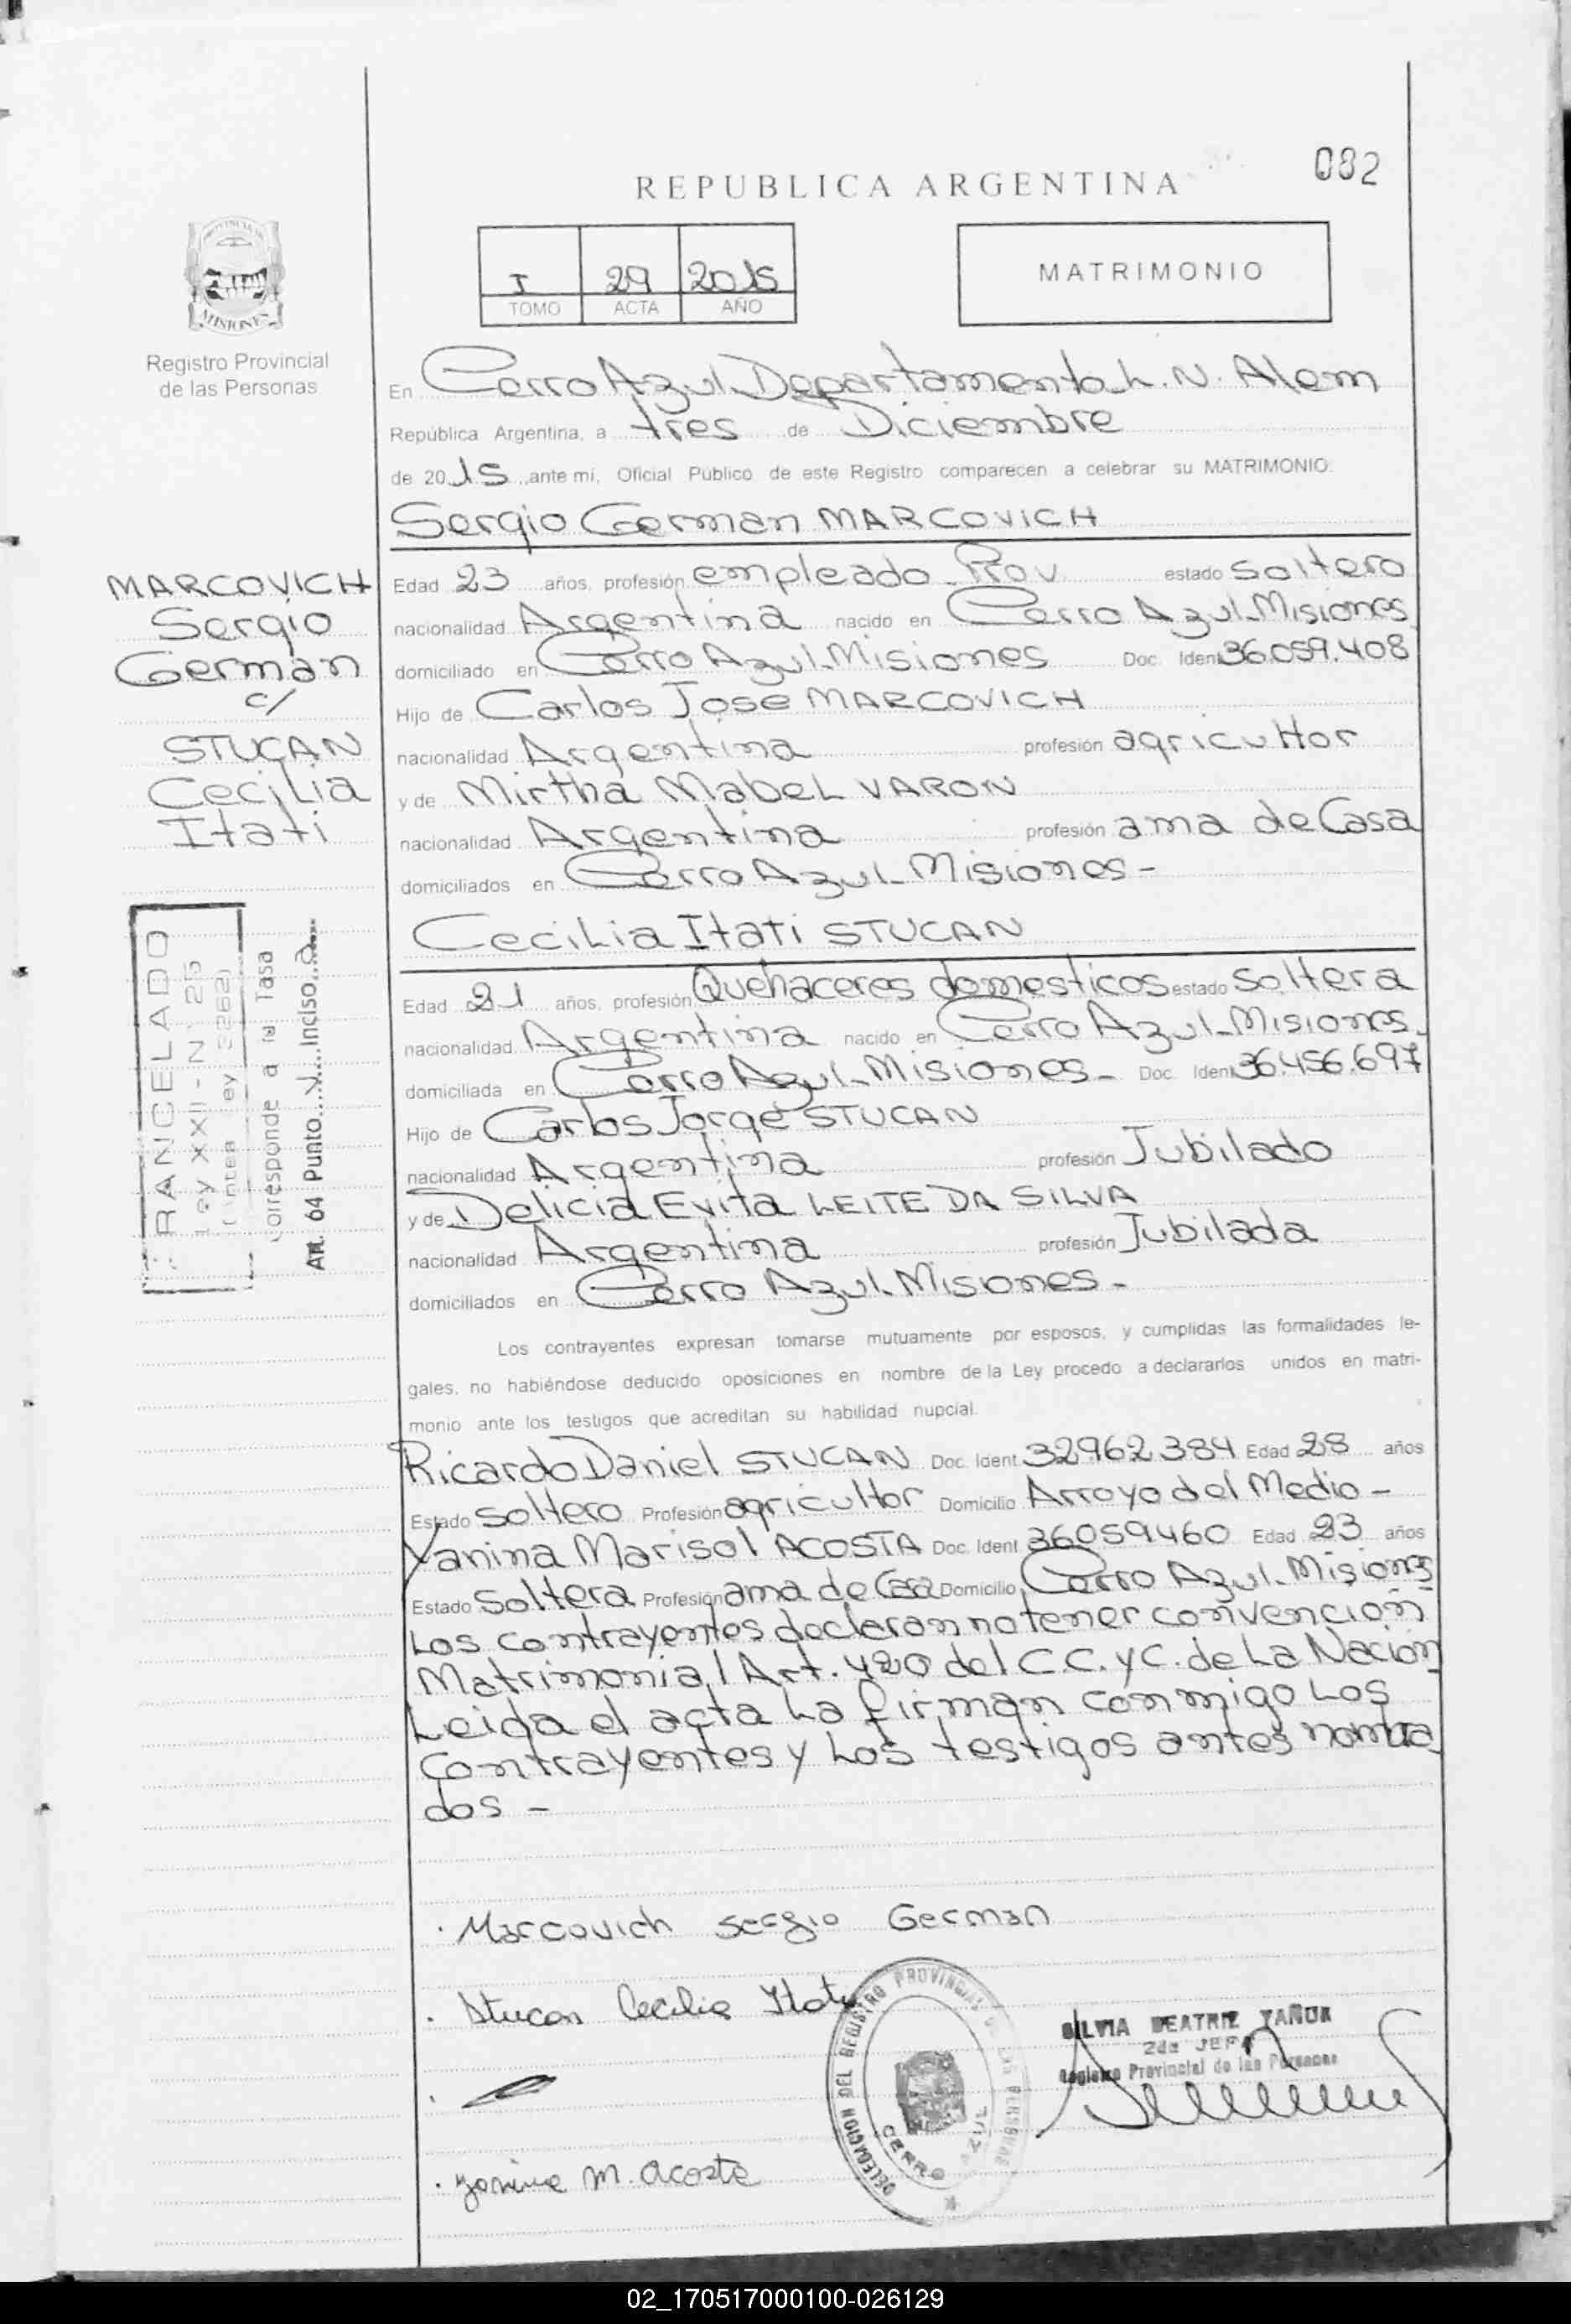 082
REPUBLICA ARGENTINA
I 29 2015
TOMO ACTA AÑO
MATRIMONIO
PROVINCIA DE
MISIONES
Registro Provincial
de las Personas
En Cerro Azul Departamento L. N. Alem
República Argentina, a tres de Diciembre
de 2015 ante mi, Oficial Público de este Registro comparecen a celebrar su MATRIMONIO:
Sergio German MARCOVICH
MARCOVICH
Sergio
Germán
c/
STUCAN
Cecilia
Itati
Edad 23 años, profesión empleado Prov estado soltero
nacionalidad Argentina nacido en Cerro Azul-Misiones
domiciliado en Cerro Azul-Misiones Doc. Ident 36.059.408
Hijo de Carlos Jose MARCOVICH
nacionalidad Argentina profesión agricultor
y de Mirtha Mabel VARON
nacionalidad Argentina profesión ama de Casa
domiciliados en Cerro Azul-Misiones-
Cecilia Itati STUCAN
Edad 21 años, profesión Quehaceres domesticos estado soltera
nacionalidad Argentina nacido en Cerro Azul-Misiones.
domiciliada en Cerro Azul-Misiones- Doc. Ident 36.456.697
Hijo de Carlos Jorge STUCAN
nacionalidad Argentina profesión Jubilado
y de Delicia Evita LEITE DA SILVA
nacionalidad Argentina profesión Jubilada
domiciliados en Cerro Azul-Misiones-
ARANCELADO
Ley XXII - N° 25
( antes ley 3262)
Corresponde a la Tasa
Art. 64 Punto V Inciso a
Los contrayentes expresan tomarse mutuamente por esposos, y cumplidas las formalidades le-
gales, no habiéndose deducido oposiciones en nombre de la Ley procedo a declararlos unidos en matri-
monio ante los testigos que acreditan su habilidad nupcial.
Ricardo Daniel STUCAN Doc. Ident 32962384 Edad 28 años
Estado soltero Profesión agricultor Domicilio Arroyo del Medio-
Yanina Marisol ACOSTA Doc. Ident 36059460 Edad 23 años
Estado soltera Profesión ama de Casa Domicilio Cerro Azul-Misiones
Los contrayentes declaran no tener convencion
Matrimonial Art. 420 del C.C. y C. de La Nación
Leida el acta La firman conmigo Los
contrayentes y Los testigos antes nombra
dos -
. Marcovich Sergio German
. Stucan Cecilia Itati
. Yanina M. Acosta
DELEGACION DEL REGISTRO PROVINCIAL DE LAS PERSONAS
CERRO AZUL
SILVIA BEATRIZ
2da JEFA
Registro Provincial de las Personas
02_170517000100-026129